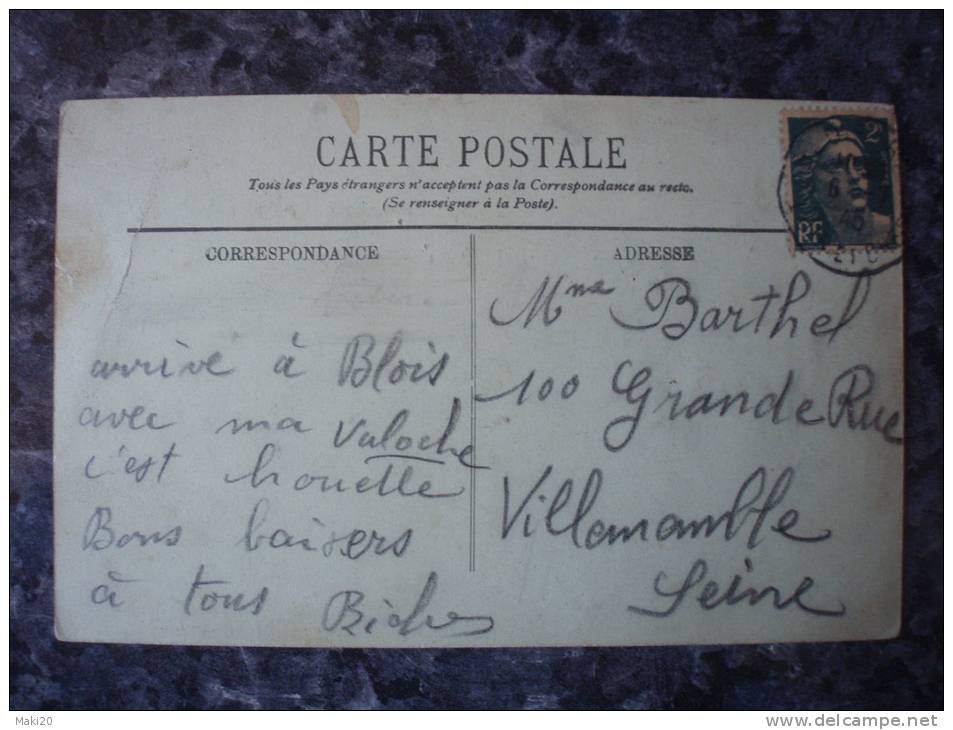 CARTE POSTALE
Tous les Pays étrangers n'acceptent pas la Correspondance au recto.
(Se renseigner à la Poste).
CORRESPONDANCE
arrivé à Blois
avec ma valoche
c'est houette
Bons baisers
à tous
ADRESSE
Mme Barthel
100 Grande Rue
Villemomble
Seine
2
RF
6
45
Maki20
www.delcampe.net